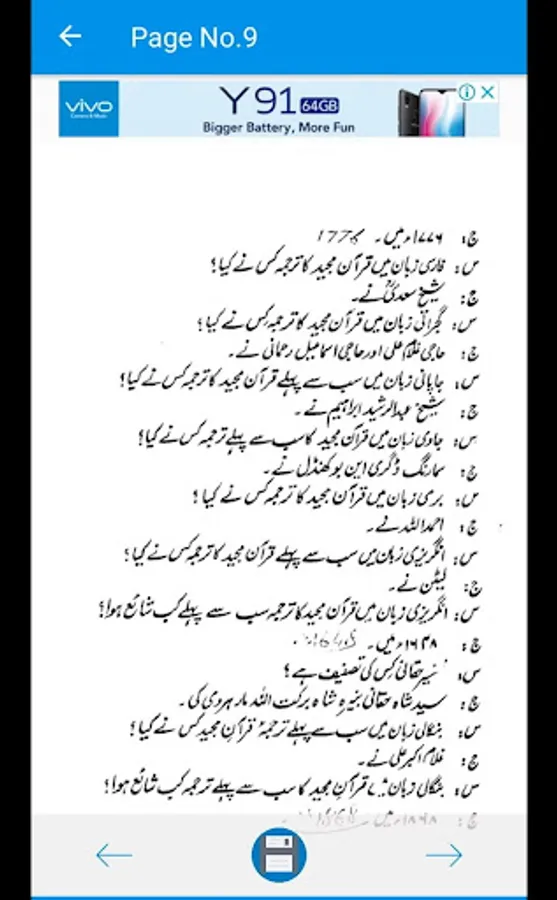 Page No.9
vivo
Camera & Music
Y91 64GB
Bigger Battery, More Fun
ج: ۱۷۷۶ء میں۔ 1776
س: فارسی زبان میں قرآن مجید کا ترجمہ کس نے کیا؟
ج: شیخ سعدیؒ نے۔
س: گجراتی زبان میں قرآن مجید کا ترجمہ کس نے کیا؟
ج: حاجی غلام علی اور حاجی اسماعیل رحمانی نے۔
س: جاپانی زبان میں سب سے پہلے قرآن مجید کا ترجمہ کس نے کیا؟
ج: شیخ عبدالرشید ابراہیم نے۔
س: جاوی زبان میں قرآن مجید کا سب سے پہلے ترجمہ کس نے کیا؟
ج: سمارنگ ڈگری این بوکھنڈل نے۔
س: بری زبان میں قرآن مجید کا ترجمہ کس نے کیا؟
ج: احمد اللہ نے۔
س: انگریزی زبان میں سب سے پہلے قرآن مجید کا ترجمہ کس نے کیا؟
ج: لیٹن نے۔
س: انگریزی زبان میں قرآن مجید کا ترجمہ سب سے پہلے کب شائع ہوا؟
ج: ۱۶۴۸ء میں۔ 1648
س: تفسیر حقانی کس کی تصنیف ہے؟
ج: سید شاہ حقانی بنیرہ شاہ برکت اللہ مارہروی کی۔
س: بنگالی زبان میں سب سے پہلے ترجمۂ قرآن مجید کس نے کیا؟
ج: غلام اکبر علی نے۔
س: بنگالی زبان میں قرآن مجید کا سب سے پہلے ترجمہ کب شائع ہوا؟
ج: ۱۸۶۸ء میں۔ 1868